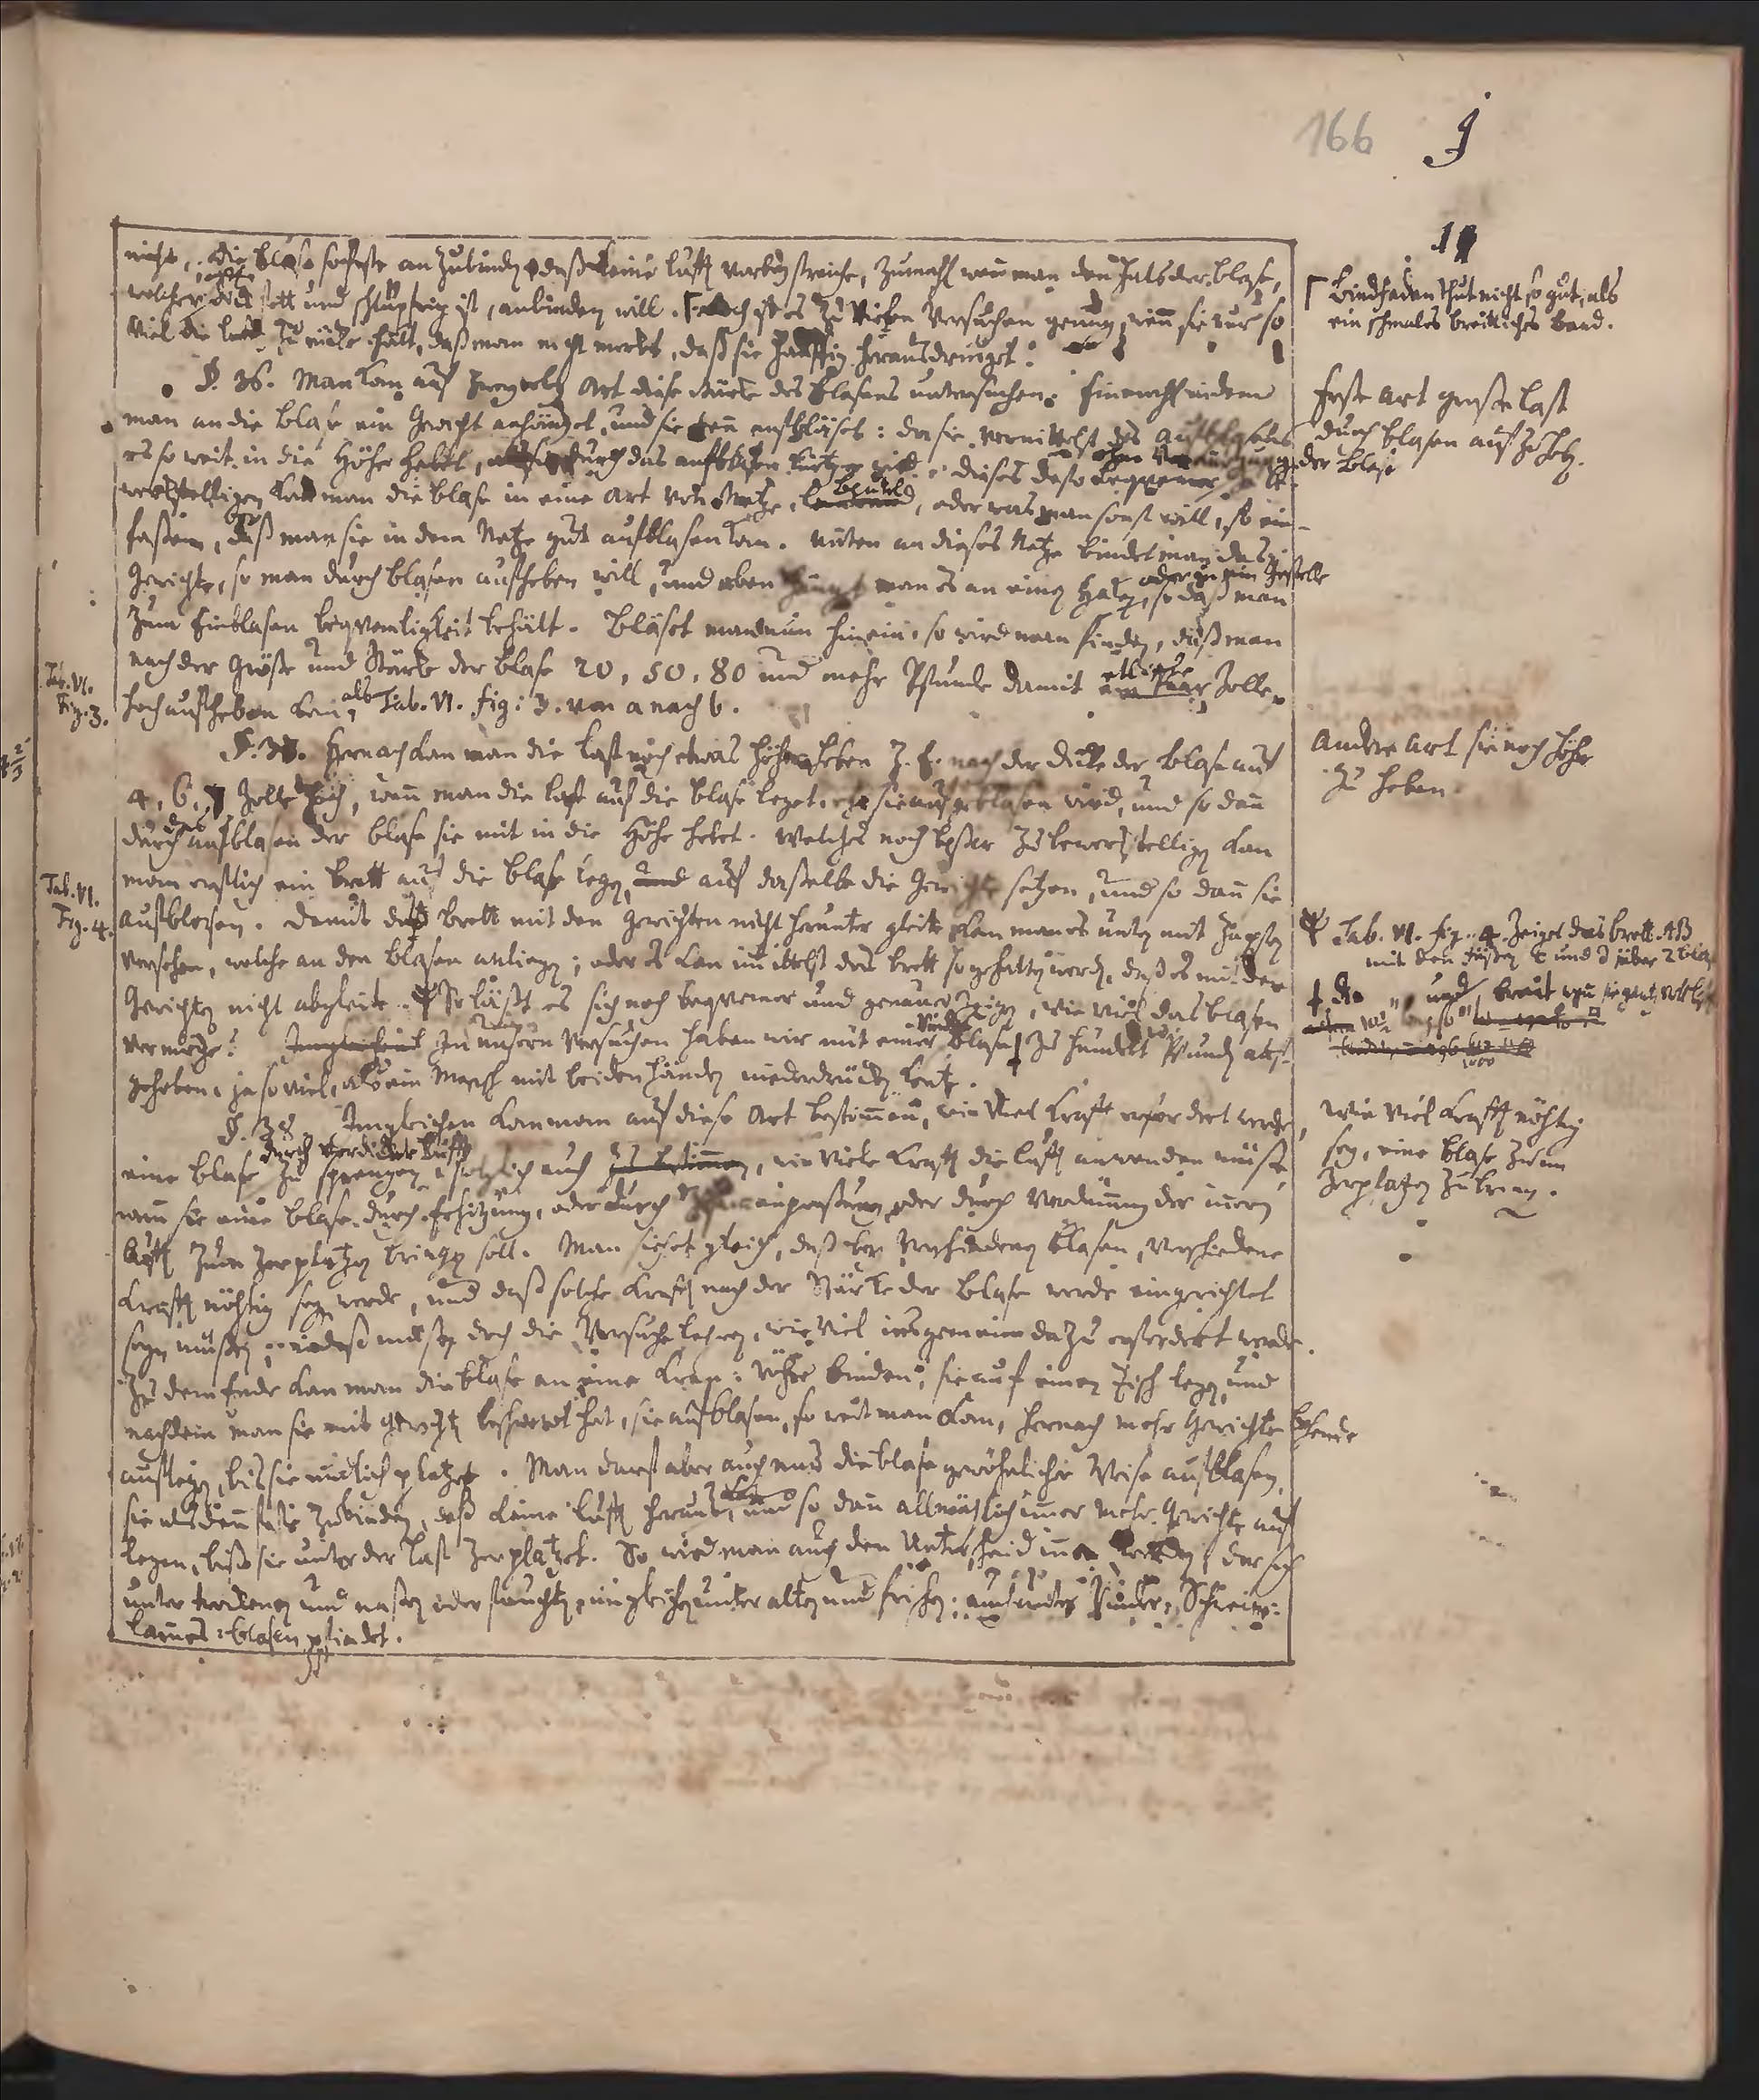 166 9
11
nicht, die Blase so feste anzubinden daß keine Lufft vorbey streiche, zumahl wenn man den Hals der Blase,
welcher offt fett und schlüpfrig ist, anbinden will. Γ doch ist es zu diesen Versuchen genung, wenn sie nur so
viel die Lufft zurücke hält, daß man nicht mercket, daß sie häuffig herausdringet.
§. 36. Man kan auf zweyerley Art diese Stärcke des Blasens untersuchen. Einmahl indem
man an die Blase ein Gewicht anhänget, und sie denn aufbläset: da sie vermittelst des Aufblasens
es so weit in die Höhe hebet, als sie durch das aufblasen kürtzer wird. dieses desto beqvemer zu be-
werckstelligen kan man die Blase in eine Art von Netze, Beutel, oder was man sonst will, so ein-
faßen, daß man sie in dem Netze gut aufblasen kan. Unten an dieses Netze bindet man das
Gewichte, so man durch blasen aufheben will, und oben hänget man es an einen Haken, oder in ein Gestelle so daß man
zum Einblasen beqvemligkeit behält. Bläset man nun hinein, so wird man finden, daß man
nach der Größe und Stärcke der Blase 20, 50, 80 und mehr Pfunde damit etliche ein paar Zolle
hoch aufheben kan, als Tab. VI. fig: 3. von a nach b.
§. 37. Hernach kan man die Last noch etwas höher heben z. E. nach der Dicke der Blase auf
4, 6, 7 Zolle hoch, wenn man die Last auf die Blase leget, ehe sie aufgeblasen wird, und so denn
durch das aufblasen der Blase sie mit in die Höhe hebet. Welches noch beßer zu bewerckstelligen kan
man erstlich ein Brett auf die Blase legen, und auf daßelbe die Gewichte setzen, und so dann sie
aufblasen. Damit das Brett mit den Gewichten nicht herunter gleite, kan man es unten mit Zapfen
versehen, welche an den Blasen anliegen; oder es kan immittelst das Brett so gehalten werden, daß es mit den
Gewichten nicht abgleite. So läßt es sich noch beqvemer und genauer zeigen, wie viel das blasen
vermöge. In unsern Versuchen haben wir mit einer Rinds Blase † zu hundert Pfunden auf-
gehoben, ja so viel, als ein Mensch mit beiden Händen niederdrücken konte.
§. 38. Imgleichen kan man auf diese Art bestimmen, wie viel Krafft erfordert werde,
eine Blase durch verdickte Lufft zu sprengen, folglich auch zu bestimmen, wie viele Krafft die Lufft anwenden müße,
wenn sie eine Blase durch Erhitzung, oder durch einpreßung oder durch Verdünnung der innern
Lufft zum zerplatzen bringen soll. Man siehet gleich, daß bey verschiedenen Blasen, verschiedene
Krafft nöhtig seyn werde, und daß solche Krafft nach der Stärcke der Blase werde eingerichtet
seyn müßen; indeß müßen doch die Versuche lehren, wie viel insgemein dazu erfordert werde.
Zu dem Ende kan man die Blase an eine Röhre binden, sie auf einen Tisch legen, und
nachdem man sie mit Gewichten beschwert hat, sie aufblasen, so weit man kan, hernach mehr Gewichte behende
auflegen, bis sie endlich platzet. Man darff aber auch nur die Blase gewöhnlicher Weise aufblasen,
sie alsdenn feste zubinden, daß keine Lufft heraus kan, und so dann allmählich immer mehr Gewichte auf
legen, biß sie unter der Last zerplatzet. So wird man auch den Unterscheid innen werden, der sich
unter trockenen und naßen oder feuchten, imgleichen unter alten und frischen; Rinder, Schwein:
Lammes: blasen findet.
Γ Bindfaden thut nicht so gut, als
ein schmales breitliches Band.
Erste Art große Last
durch blasen aufzuheben
der Blase
Tab. VI.
Fig. 3.
Andere Art sie noch höher
zu heben.
Tab. VI.
Fig. 4.
Tab. VI. fig. 4. zeiget das Brett AB
mit den Füßen C und D über 2 Blasen
† die und breit
Wie viel Krafft nöhtig
sey, eine Blase zum
zerplatzen zubringen.